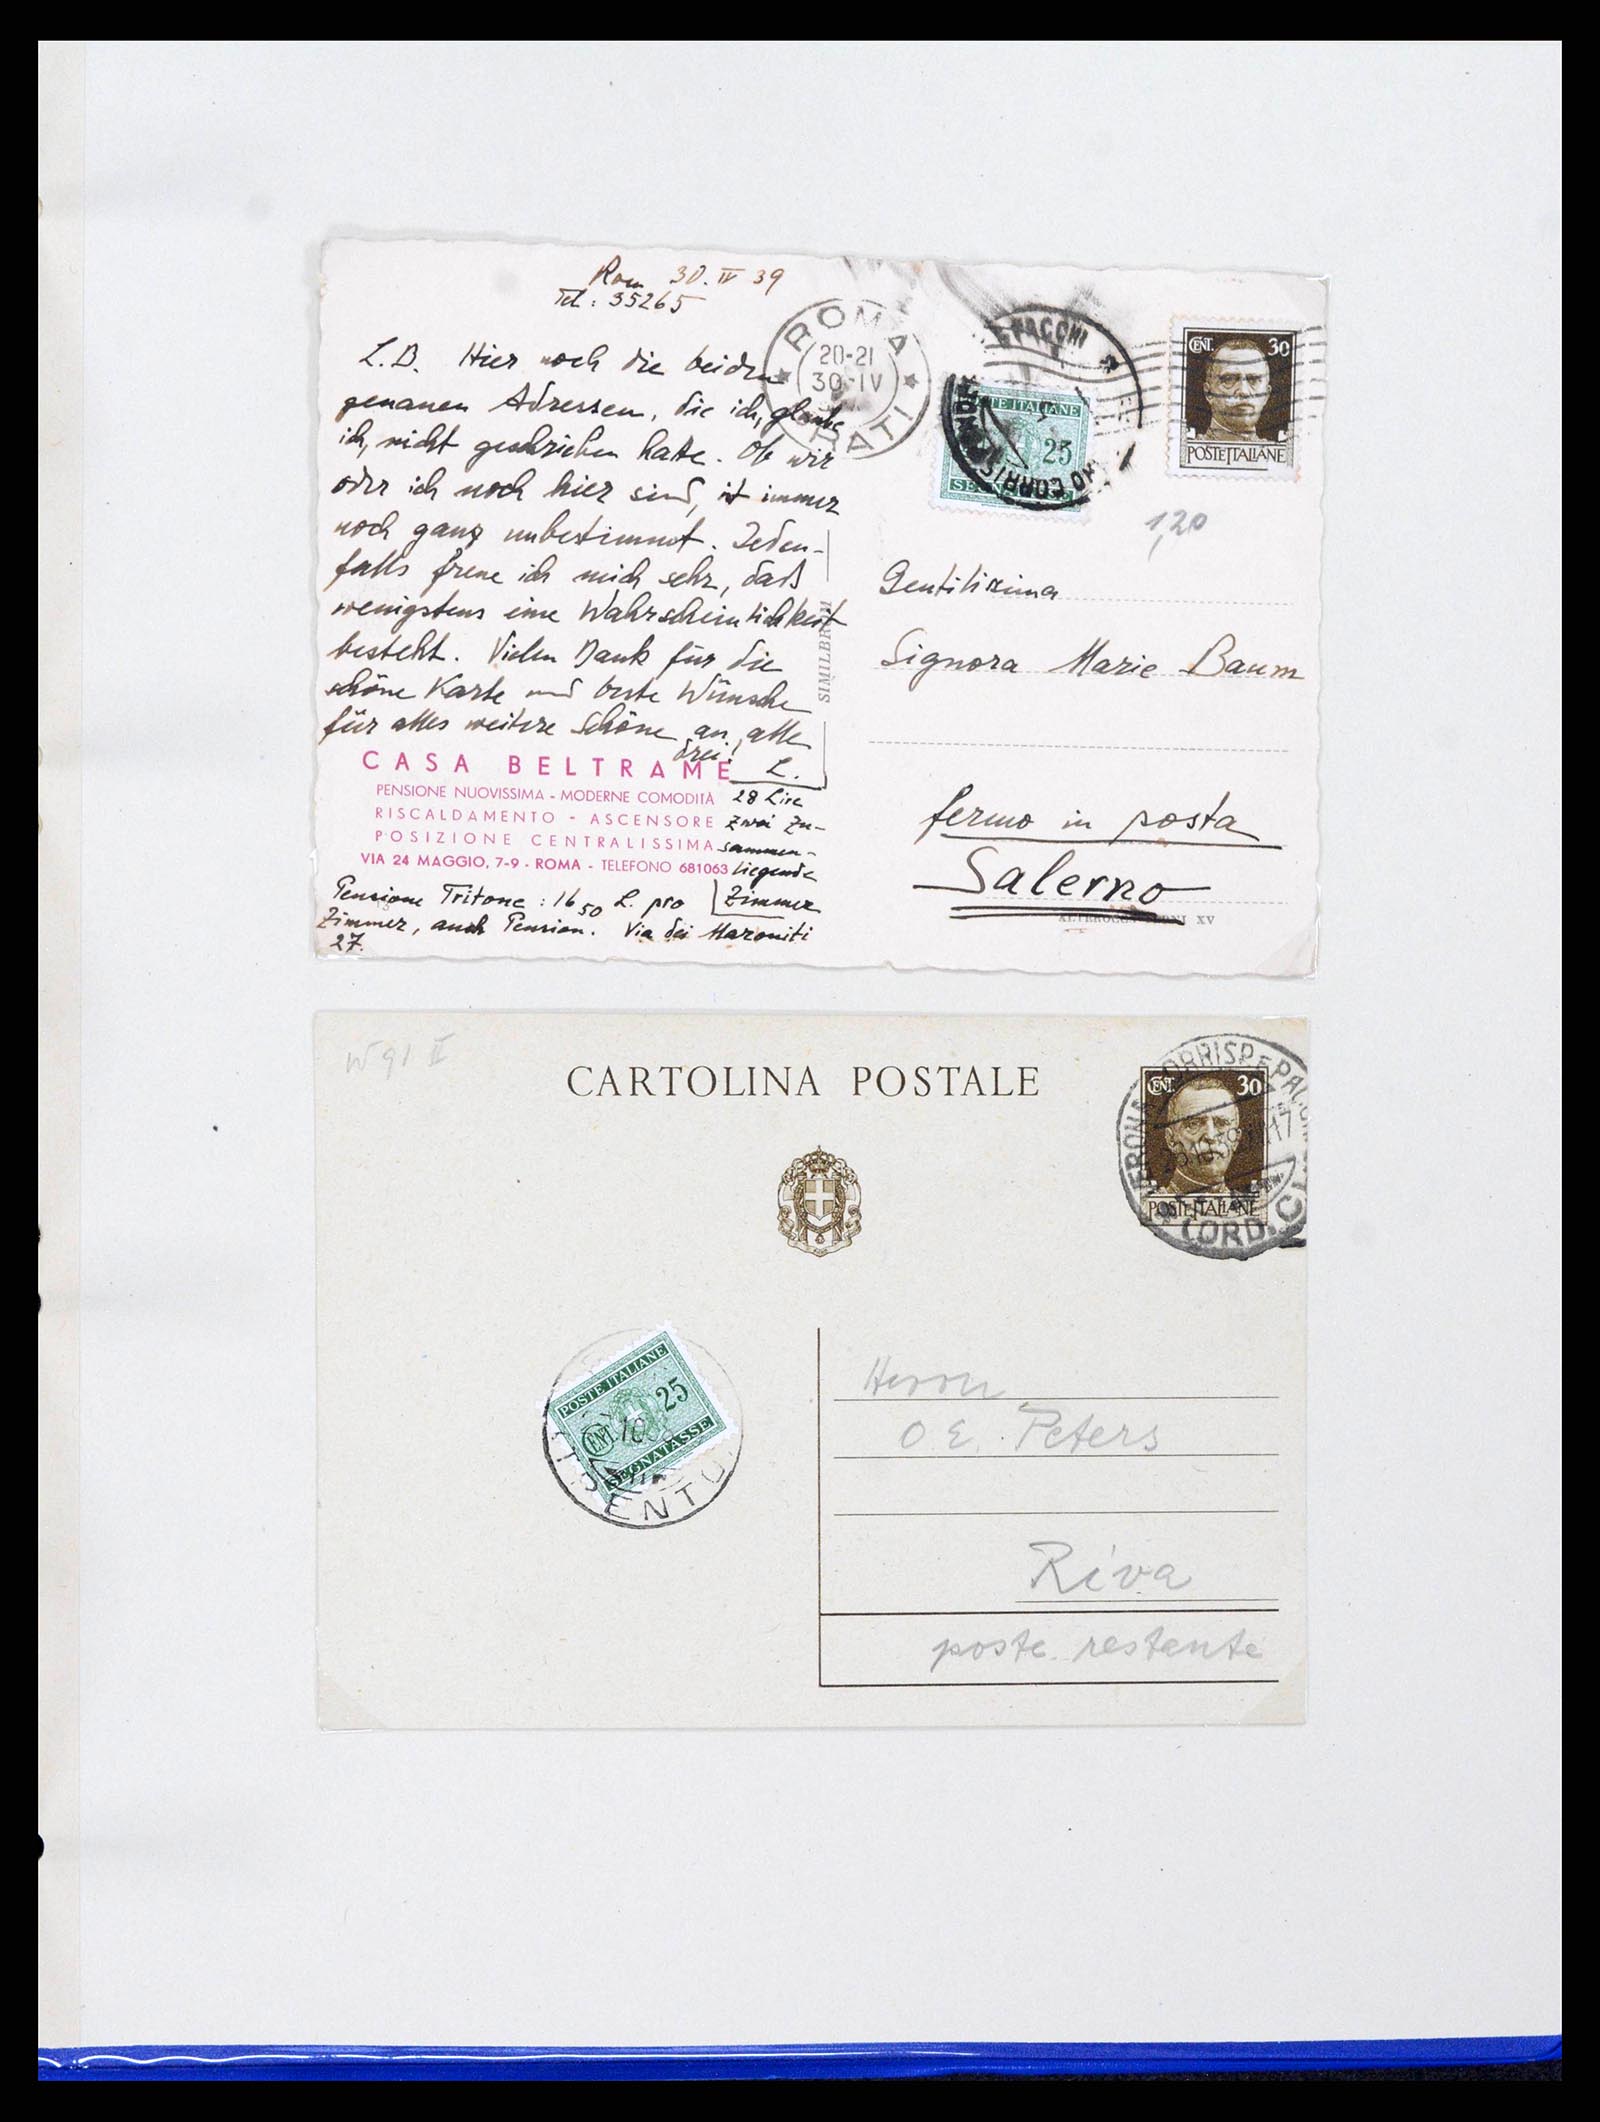 Rom 30. IV 39
Tel: 35265
L.B. Hier noch die beiden
genauen Adressen, die ich, glaube
ich, nicht geschrieben hatte. Ob wir
oder ich noch hier sind, ist immer
noch ganz unbestimmt. Jeden-
falls freue ich mich sehr, daß
wenigstens eine Wahrscheinlichkeit
besteht. Vielen Dank für die
schöne Karte und beste Wünsche
für alles weitere Schöne an alle
drei!
L.
CASA BELTRAME
PENSIONE NUOVISSIMA - MODERNE COMODITÀ
RISCALDAMENTO - ASCENSORE
POSIZIONE CENTRALISSIMA
VIA 24 MAGGIO, 7-9 - ROMA - TELEFONO 681063
28 Lire
zwei zu-
sammen-
liegende
Zimmer
Pensione Tritone: 16 50 L. pro
Zimmer, auch Pension. Via dei Maroniti
27.
ROMA
20-21
30-IV
PRATI
PACCHI
CORRISPONDENZE
POSTE ITALIANE
25
CENT. 30
POSTE ITALIANE
1,20
SIMILBROM
Gentilissima
Signora Marie Baum
fermo in posta
Salerno
XV
W 91 II
CARTOLINA POSTALE
CENT. 30
POSTE ITALIANE
CORRISP. E PACCHI
17
(ORD.
POSTE ITALIANE
CENT. 25
SEGNATASSE
Herrn
O. E. Peters
Riva
poste restante